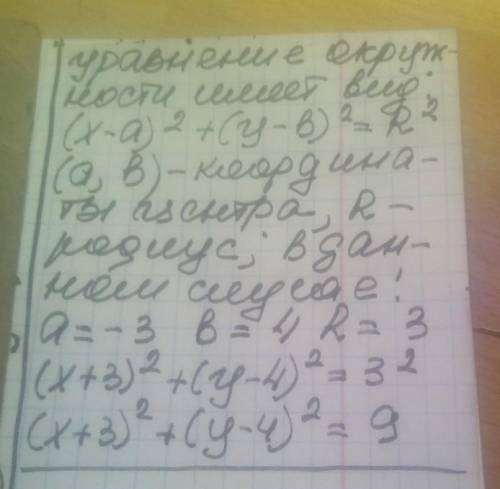 уравнение окруж-
ности имеет вид:
(x-a)² +(y-в)² = R²
(a, в) - координа-
ты центра, R -
радиус; в дан-
ном случае:
a = -3 в = 4 R = 3
(x+3)² +(y-4)² = 3²
(x+3)² +(y-4)² = 9